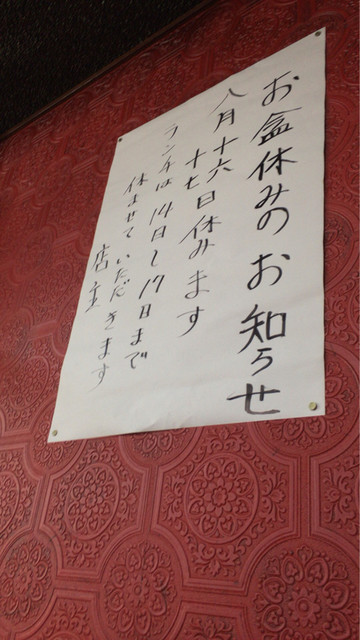 お盆休みのお知らせ
八月十六
十七日休みます
ランチは14日〜17日まで
休ませていただきます
店主